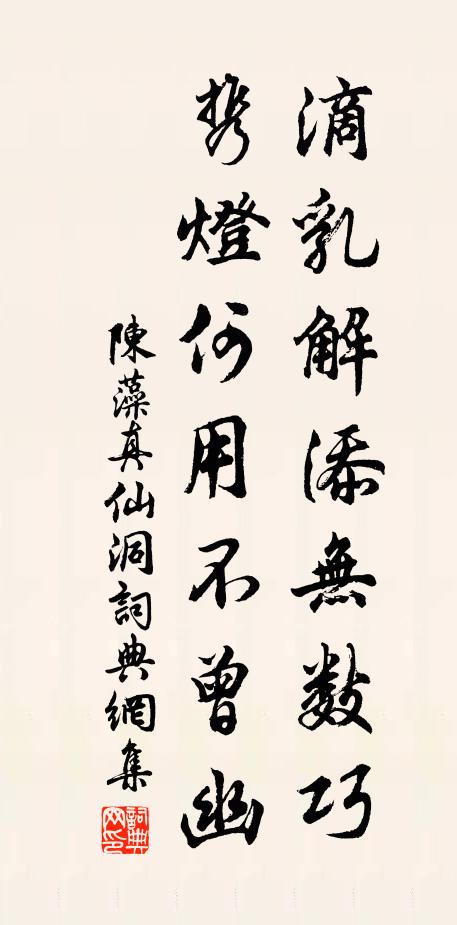 滴乳解添無數巧
携燈何用不曾幽
陳藻真仙洞詞典網集
詞典網印